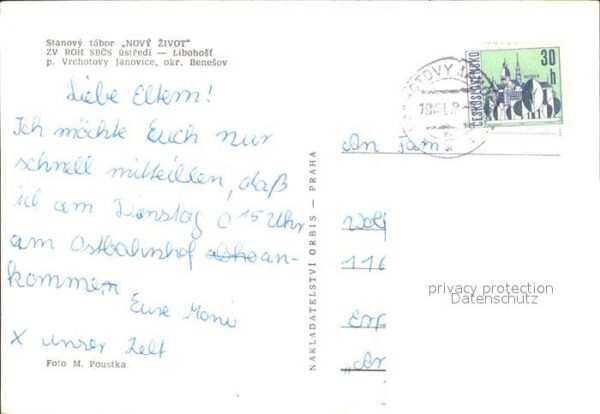 Stanový tábor „NOVÝ ŽIVOT"
ZV ROH SBČS ústředí — Libohošť
p. Vrchotovy Janovice, okr. Benešov
Liebe Eltern!
Ich möchte Euch nur
schnell mitteillen, daß
ich am Dienstag 0 15 Uhr
am Ostbahnhof an-
kommen
Eure Moni
X unser Zelt
Foto M. Poustka
NAKLADATELSTVÍ ORBIS — PRAHA
30
h
ČESKOSLOVENSKO
KOŠICE
An Fam.
116
privacy protection
Datenschutz